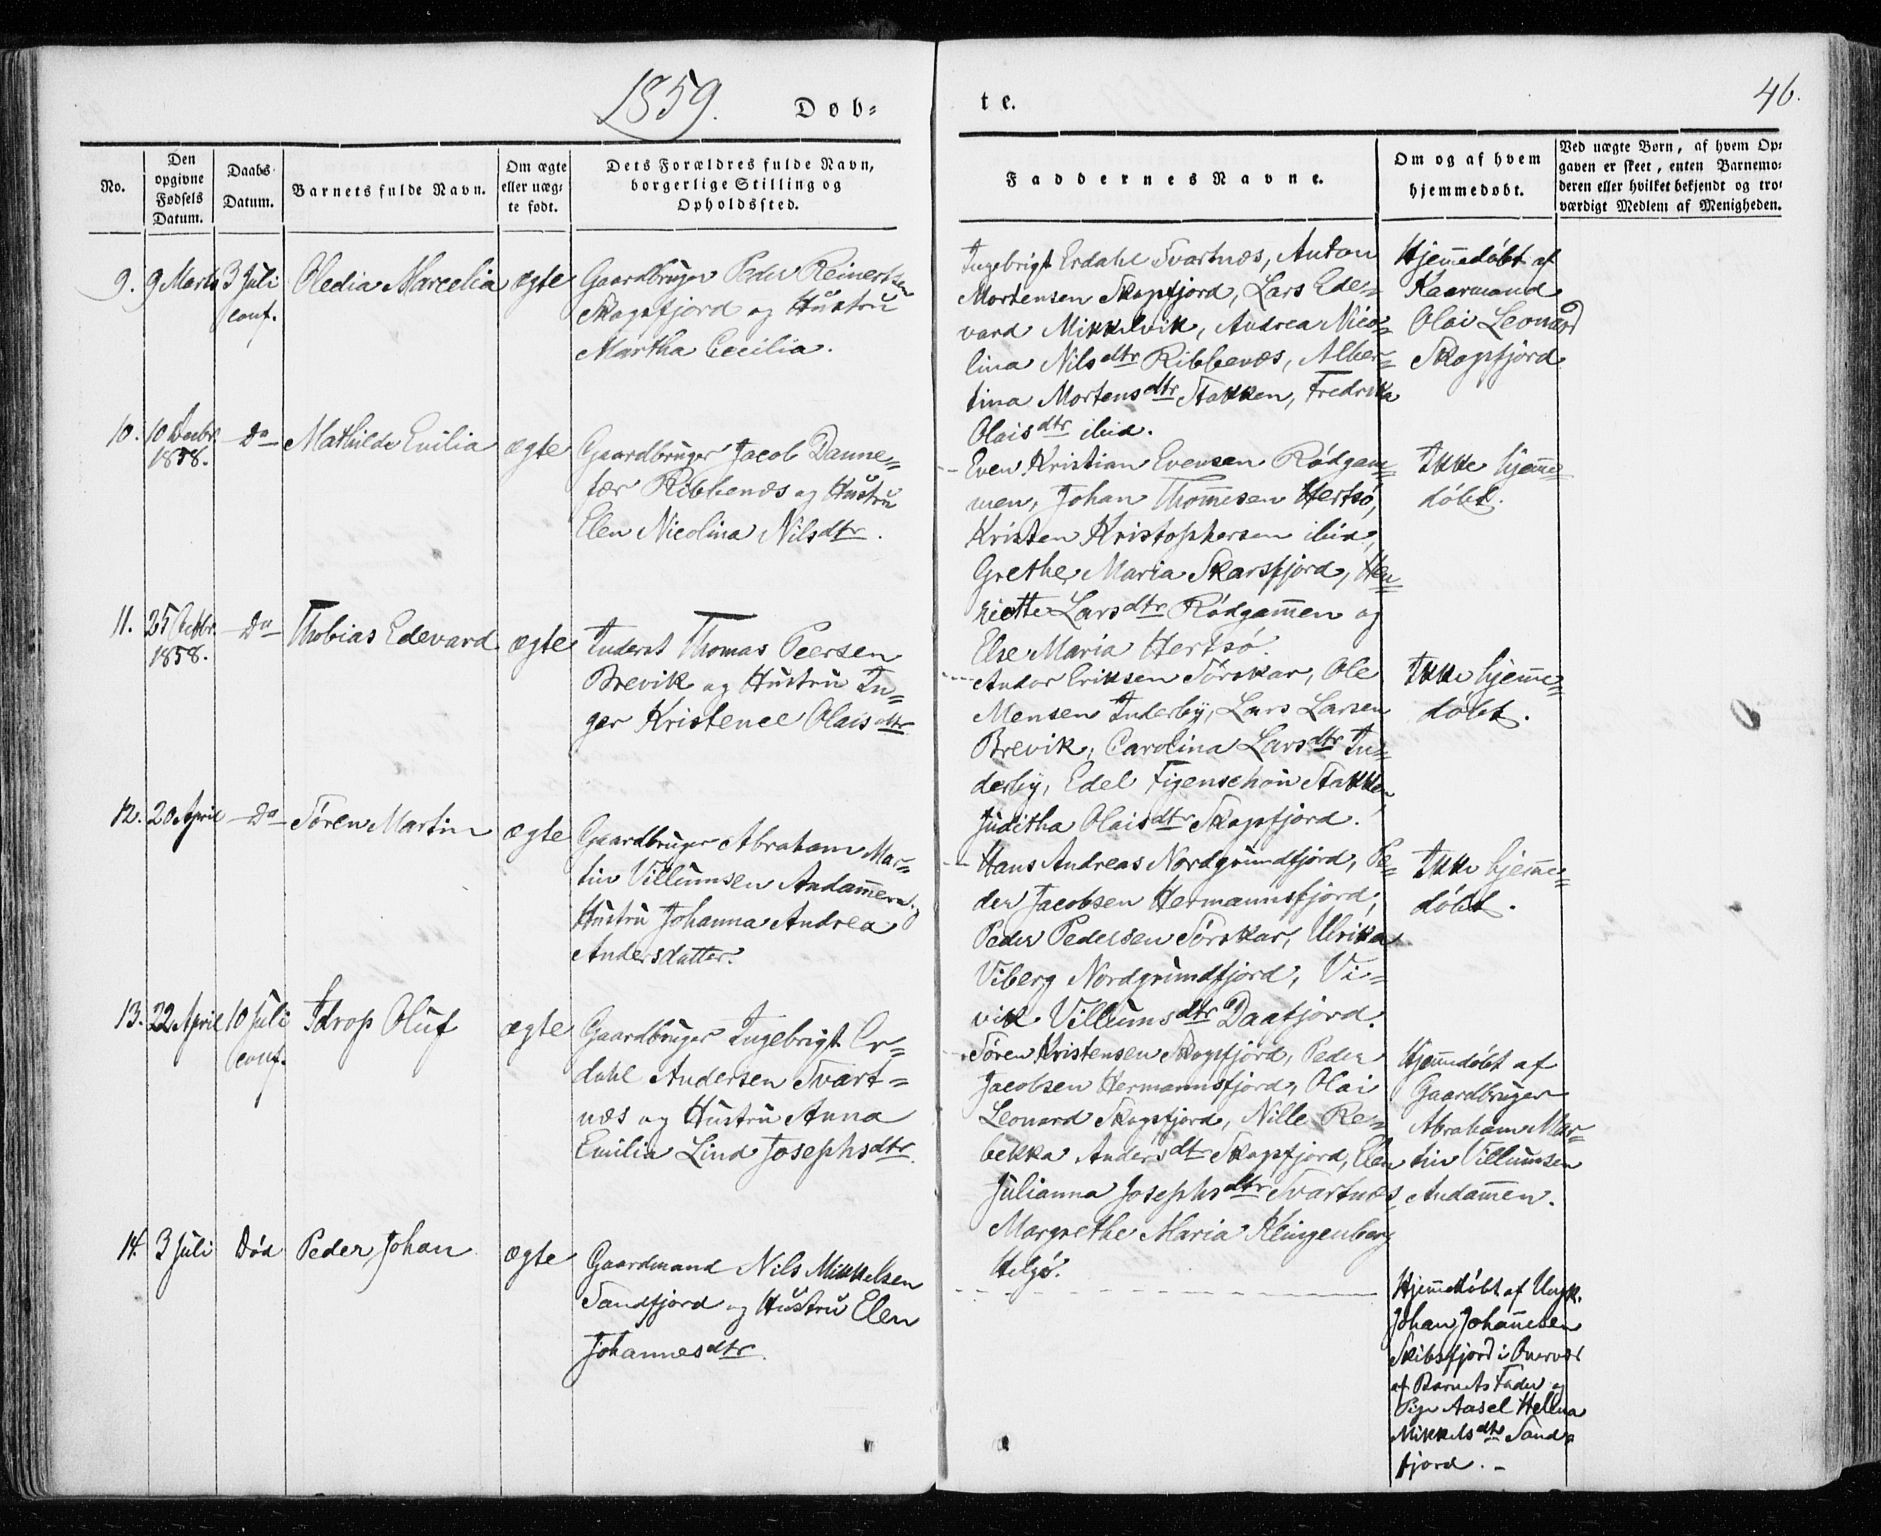 1859.
Døb-
te.
46.
No.
Den
opgivne
Fødsels
Datum.
Daabs
Datum.
Barnets fulde Navn.
Om ægte
eller uæg-
te født.
Dets Forældres fulde Navn,
borgerlige Stilling og
Opholdssted.
Faddernes Navne.
Om og af hvem
hjemmedøbt.
Ved uægte Børn, af hvem Op-
gaven er skeet, enten Barnemo-
deren eller hvilket bekjendt og tro-
værdigt Medlem af Menigheden.
9.
9 Marts
3 Juli
conf.
Oledia Marcelia
ægte
Gaardbruger Peder Reinertsen
Skogsfjord og Hustru
Martha Cecilia.
Ingebrigt Erdahl Svartnæs, Anton
Mortensen Skogsfjord, Lars Ede-
vard Mikkelvik, Andrea Nico-
lina Nilsdtr Ribbenæs, Alber-
tina Mortensdtr Stakken, Fredrika
Olaisdtr ibid.
Hjem̅edøbt af
Kaarmand
Olai Leonard
Skogsfjord
10.
10 Decbr.
1858.
Do
Mathilde Emilia
ægte
Gaardbruger Jacob Danne-
fær Ribbenæs og Hustru
Elen Nicolina Nilsdtr.
Even Kristian Evensen Rödgam-
men, Johan Thom̅esen Hertsö,
Kristen Kristophersen ibid,
Grethe Maria Skarsfjord, Hen-
riette Larsdtr Rödgam̅en og
Else Maria Hertsö.
Ikke hjem̅e-
döbt.
11.
25 Octbr.
1858.
Do
Thobias Edevard
ægte
Inderst Thomas Peersen
Brevik og Hustru In-
ger Kristence Olaisdtr
Andor Eriksen Sörskar, Ole
Mensen Inderby, Lars Larsen
Brevik, Carolina Larsdtr In-
derby, Edel Figenschou Stakken,
Juditha Olaisdtr Skogsfjord.
Ikke hjem̅e-
döbt.
12.
20 April
Do
Sören Martin
ægte
Gaardbruger Abraham Mar-
tin Villumsen Andam̅en og
Hustru Johanna Andrea
Andersdatter.
Hans Andreas Nordgrundfjord, Pe-
der Jacobsen Hermannsfjord,
Peder Pedersen Sörskar, Ulrika
Viberg Nordgrundfjord, Vi-
vik Villumsdtr Daafjord.
Ikke hjem̅e-
döbt.
13.
22 April
10 Juli
conf.
Idrop Oluf
ægte
Gaardbruger Ingebrigt Er-
dahl Andersen Svart-
næs og Hustru Anna
Emilia Lind Josephsdtr.
Sören Kristensen Skogsfjord, Peder
Jacobsen Hermannsfjord, Olai
Leonard Skogsfjord, Nille Re-
bekka Andersdtr Skogsfjord, Elen
Julianna Josephsdtr Svartnæs,
Margrethe Maria Klingenberg
Helgö.
Hjem̅edöbt af
Gaardbruger
Abraham Mar-
tin Villumsen
Andam̅en.
14.
3 Juli
Död
Peder Johan
ægte
Gaardmand Nils Mikkelsen
Sandfjord og Hustru Elen
Johannesdtr.
Hjem̅edöbt af Ungk.
Johan Johan̅esen
Skibsfjord i Overvær
af Barnets Fader og
Pige Aasel Helena
Mikkelsdtr Sand-
fjord.